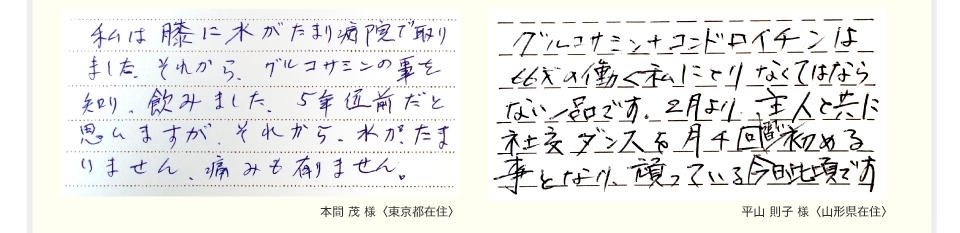 私は膝に水がたまり病院で取り
ました。それから、グルコサミンの事を
知り、飲みました、5年位前だと
思いますが、それから、水が、たま
りません、痛みも有りません。
本間 茂 様〈東京都在住〉
グルコサミン+コンドロイチンは
66才の働く私にとり なくてはなら
ない一品です。2月より、主人と共に
社交ダンスを月4回習い初める
事となり、頑っている今日此頃です
平山 則子 様〈山形県在住〉